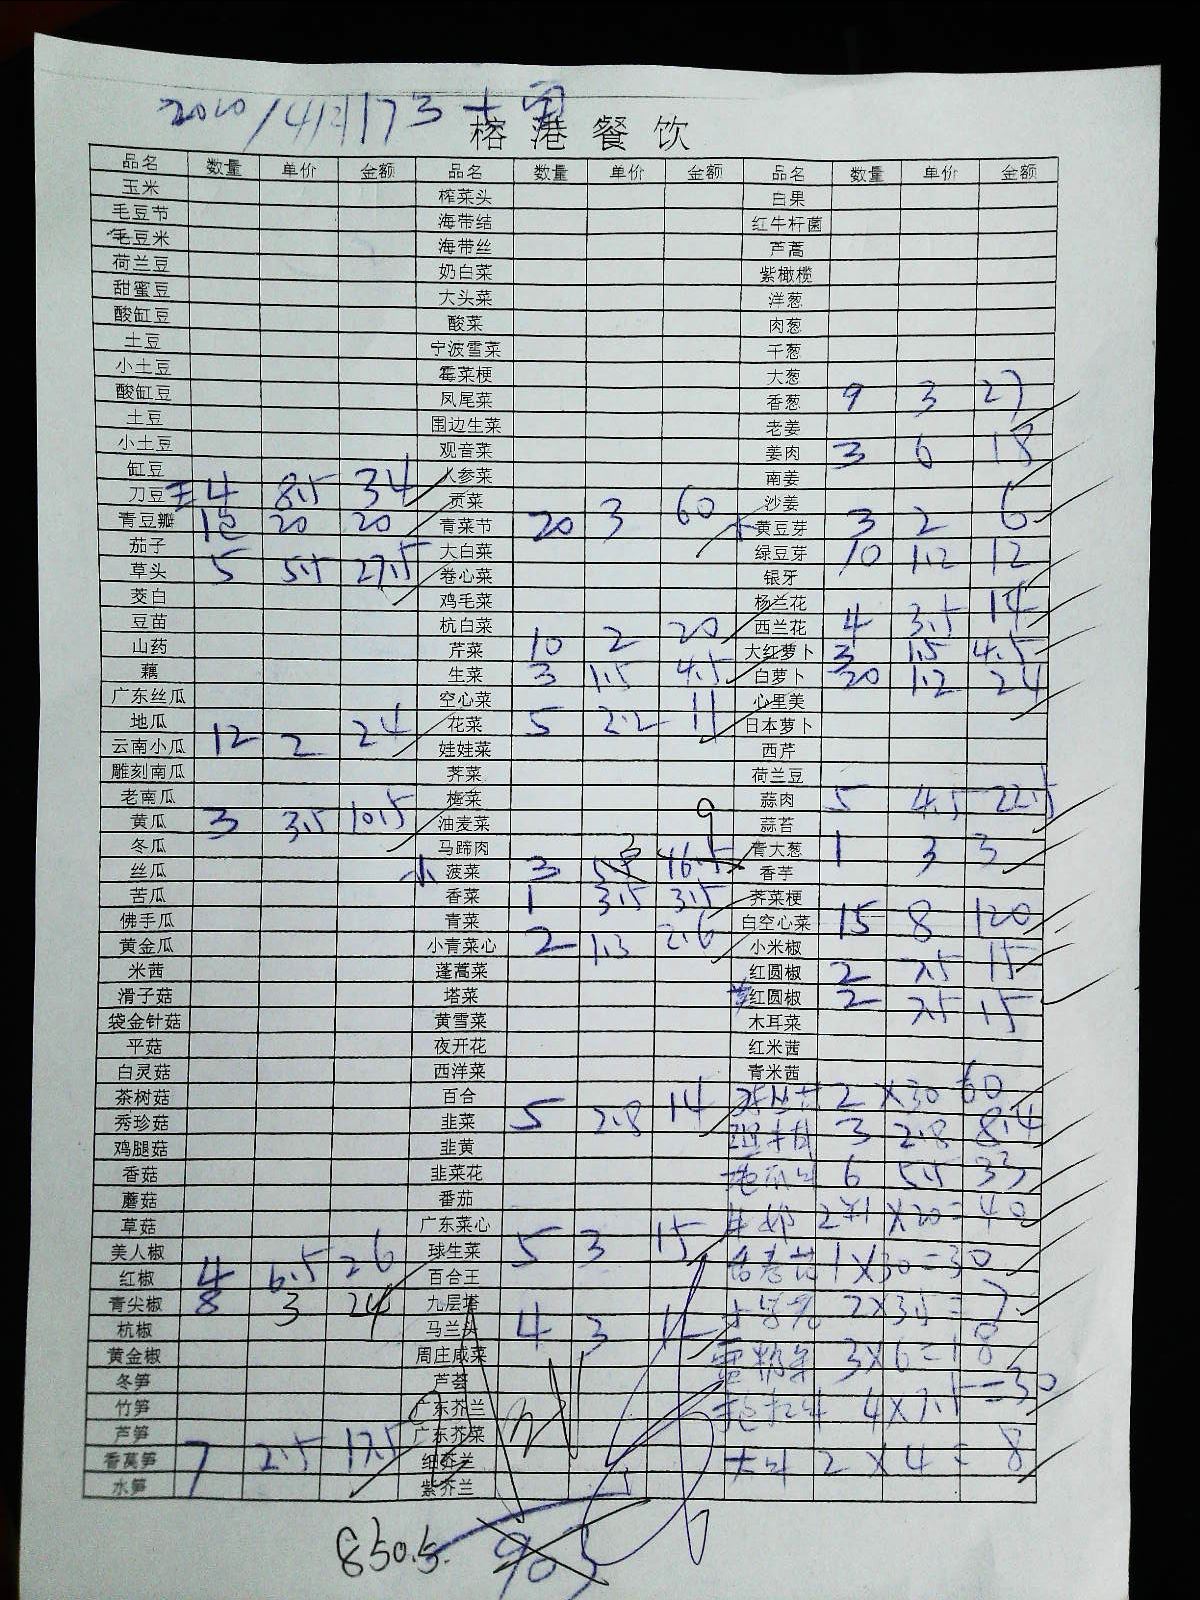 榕港餐饮
品名 数量 单价 金额 品名 数量 单价 金额 品名 数量 单价 金额
玉米 榨菜头 白果
毛豆节 海带结 红牛杆菌
毛豆米 海带丝 芦蒿
荷兰豆 奶白菜 紫橄榄
甜蜜豆 大头菜 洋葱
酸缸豆 酸菜 肉葱
土豆 宁波雪菜 干葱
小土豆 霉菜梗 大葱
酸缸豆 凤尾菜 香葱 9 3 27
土豆 围边生菜 老姜
小土豆 观音菜 姜肉 3 6 18
缸豆 人参菜 南姜
刀豆 4 8.5 34 贡菜 沙姜
青豆瓣 1包 20 20 青菜节 20 3 60 黄豆芽 3 2 6
茄子 大白菜 绿豆芽 10 1.2 12
草头 5 5.5 27.5 卷心菜 银牙
茭白 鸡毛菜 杨兰花
豆苗 杭白菜 西兰花 4 3.5 14
山药 芹菜 10 2 20 大红萝卜 3 1.5 4.5
藕 生菜 3 1.5 4.5 白萝卜 20 1.2 24
广东丝瓜 空心菜 心里美
地瓜 花菜 5 2.2 11 日本萝卜
云南小瓜 12 2 24 娃娃菜 西芹
雕刻南瓜 荠菜 荷兰豆
老南瓜 梅菜 蒜肉 5 4.5 22.5
黄瓜 3 3.5 10.5 油麦菜 蒜苔
冬瓜 马蹄肉 9 青大葱 1 3 3
丝瓜 小 菠菜 3 16.5 香芋
苦瓜 香菜 1 3.5 3.5 荠菜梗
佛手瓜 青菜 白空心菜 15 8 120
黄金瓜 小青菜心 2 1.3 2.6 小米椒
米茜 蓬蒿菜 红圆椒 2 7.5 15
滑子菇 塔菜 红圆椒 2 7.5 15
袋金针菇 黄雪菜 木耳菜
平菇 夜开花 红米茜
白灵菇 西洋菜 青米茜
茶树菇 百合 2 ×30 60
秀珍菇 韭菜 5 2.8 14 3 2.8 8.4
鸡腿菇 韭黄 6 5.5 33
香菇 韭菜花 牛奶 2 ×20=40
蘑菇 番茄 1×30=30
草菇 广东菜心 2×3.5=7
美人椒 球生菜 5 3 15 3×6=18
红椒 4 6.5 26 百合王 4×7.5=30
青尖椒 8 3 24 九层塔 2×4=8
杭椒 马兰头 4 3 12
黄金椒 周庄咸菜
冬笋 芦荟
竹笋 广东芥兰
芦笋 广东芥菜
香莴笋 7 2.5 17.5 细芥兰
水笋 紫芥兰
850.5.
905